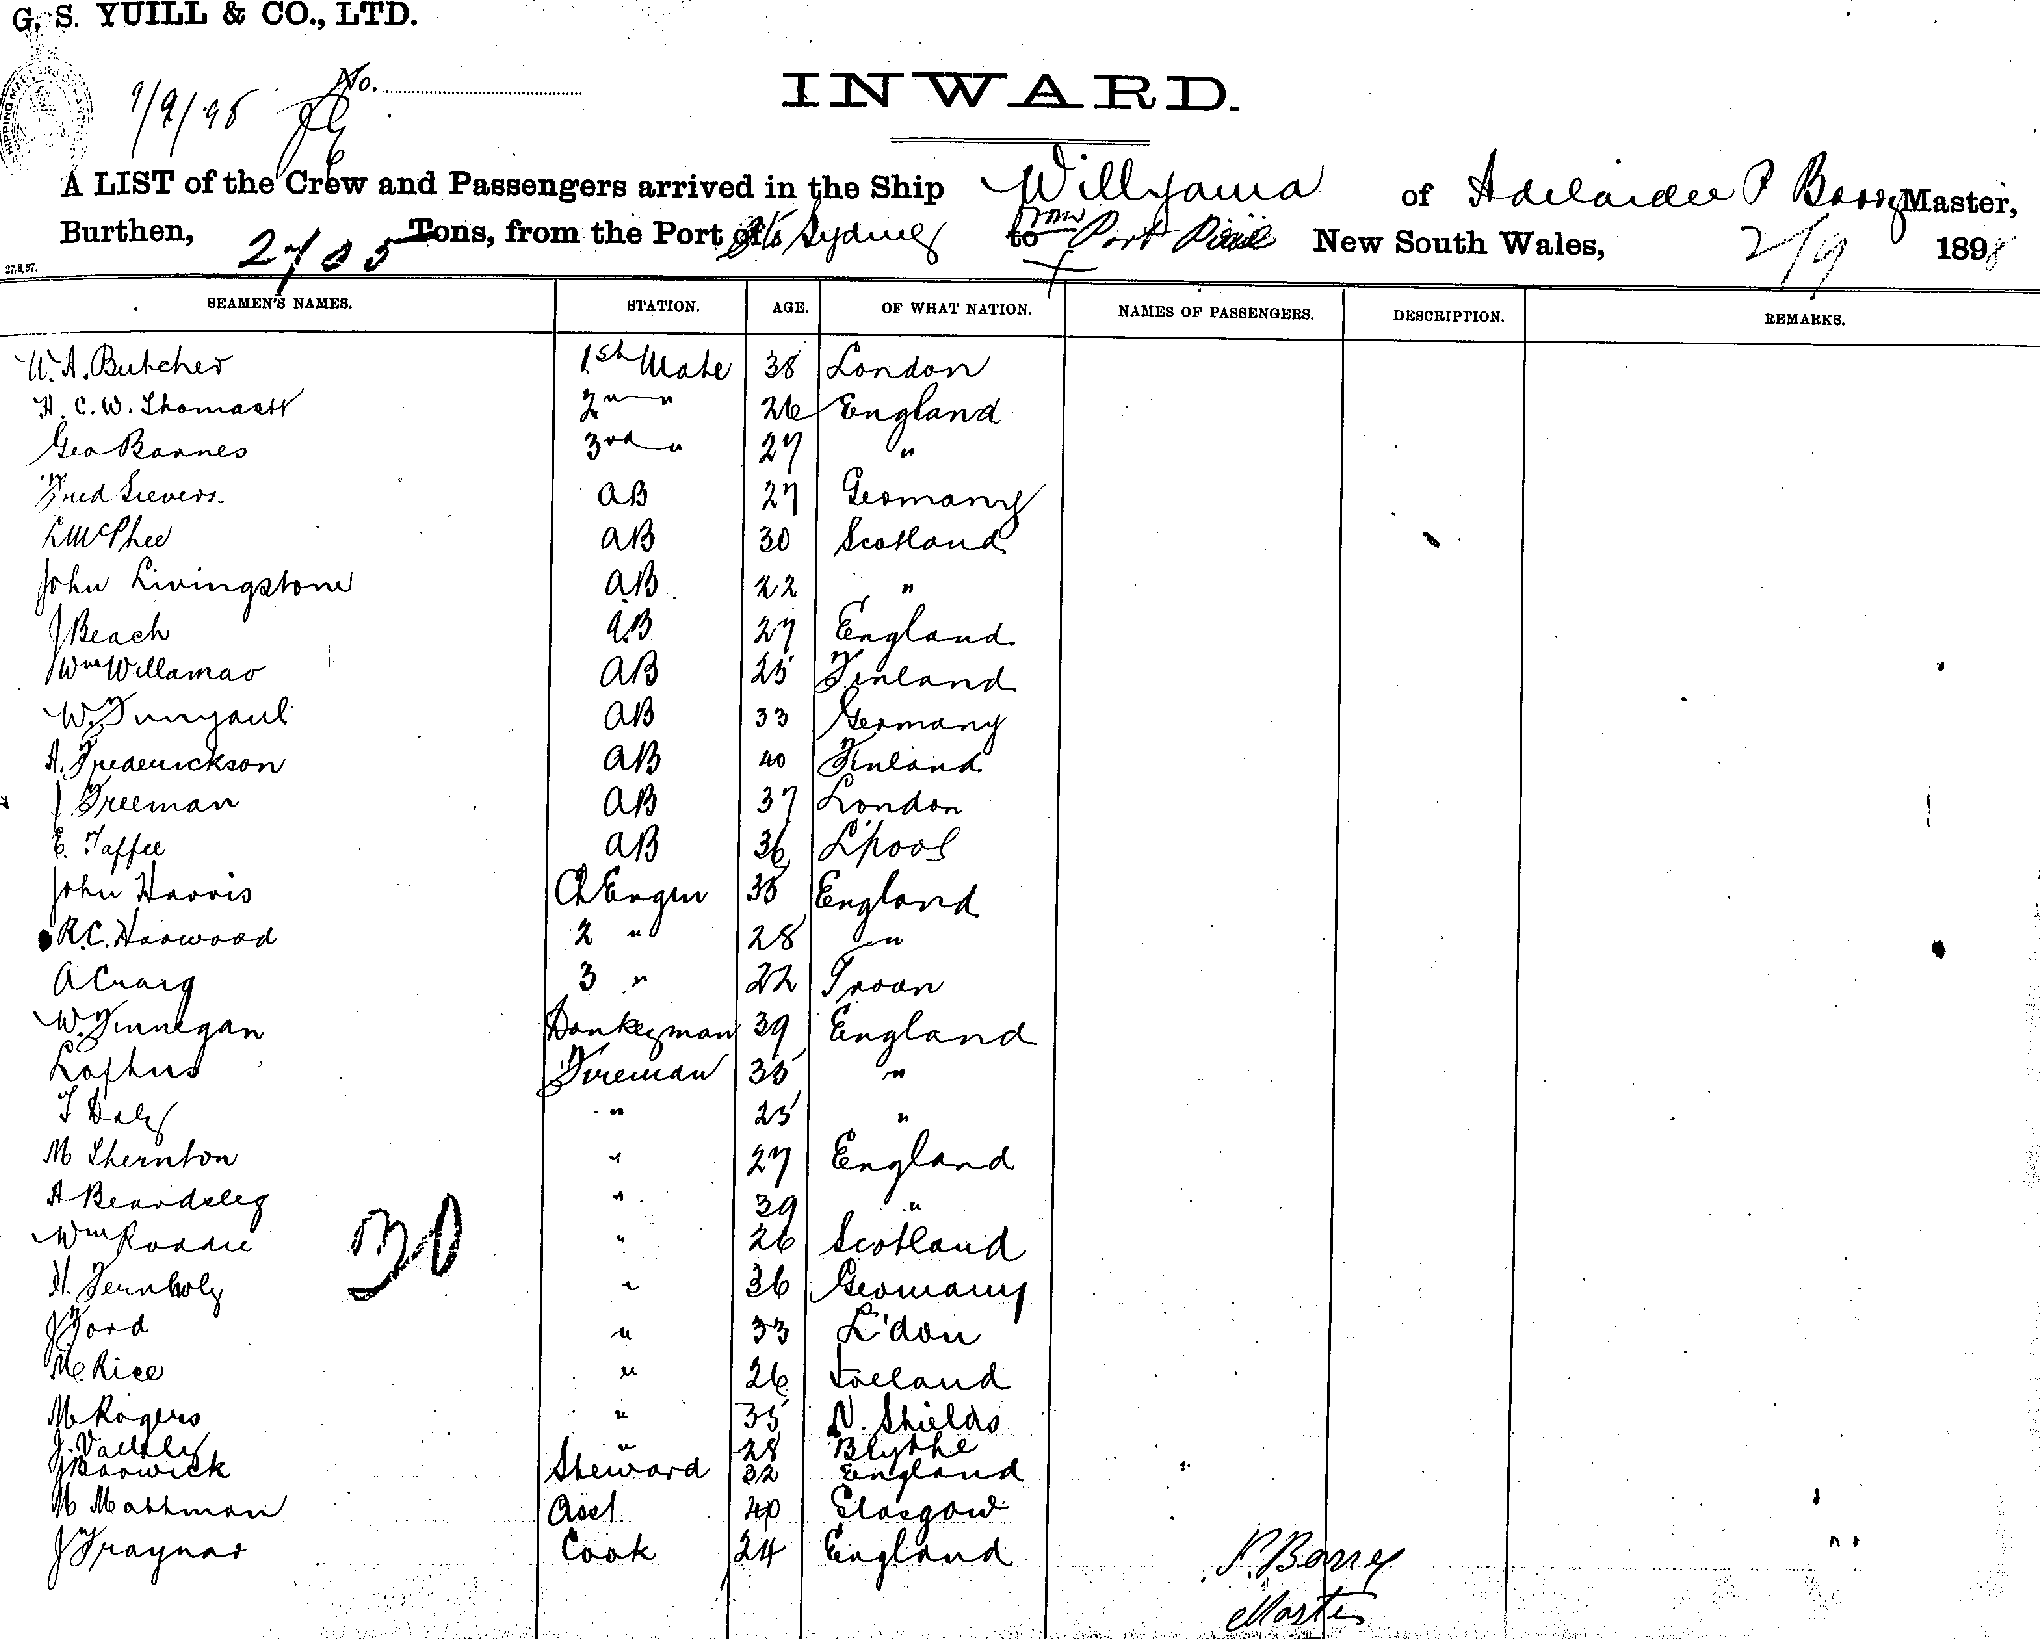 G. S. YUILL & CO., LTD.
1/9/98 No.
INWARD.
A LIST of the Crew and Passengers arrived in the Ship Willyama of Adelaide P Barry Master,
Burthen, 2705 Tons, from the Port of Sydney to from Port Pirie New South Wales, 2/9 1898
27.8.97.
SEAMEN'S NAMES. STATION. AGE. OF WHAT NATION. NAMES OF PASSENGERS. DESCRIPTION. REMARKS.
W. A. Butcher 1st Mate 38 London
H. C. W. 2nd " 26 England
Geo Barnes 3rd " 27 "
Fred Sievers. AB 27 Germany
L McPhee AB 30 Scotland
John Livingstone AB 22 "
J Beach AB 27 England
Wm Willamar AB 25 Finland
W. AB 33 Germany
A. Frederickson AB 40 Finland
J Freeman AB 37 London
E. Taffee AB 36 L'pool
John Harris Ch Engin 35 England
R. C. Harwood 2 " 28 "
A Craig 3 " 22 Troon
W. Finnegan Donkeyman 39 England
Loftus Fireman 35 "
T Daly " 25 "
M Thernton " 27 England
A Beardsley " 39 "
Wm Roddie " 26 Scotland
30
H. Fernholz " 36 Germany
J Ford " 33 L'don
M. Rice " 26 Ireland
M Rogers " 35 N. Shields
J. " 28 Blythe
J Barwick Steward 32 England
M Mathman Asst 40 Glasgow
J Traynar Cook 24 England
P. Barry
Master